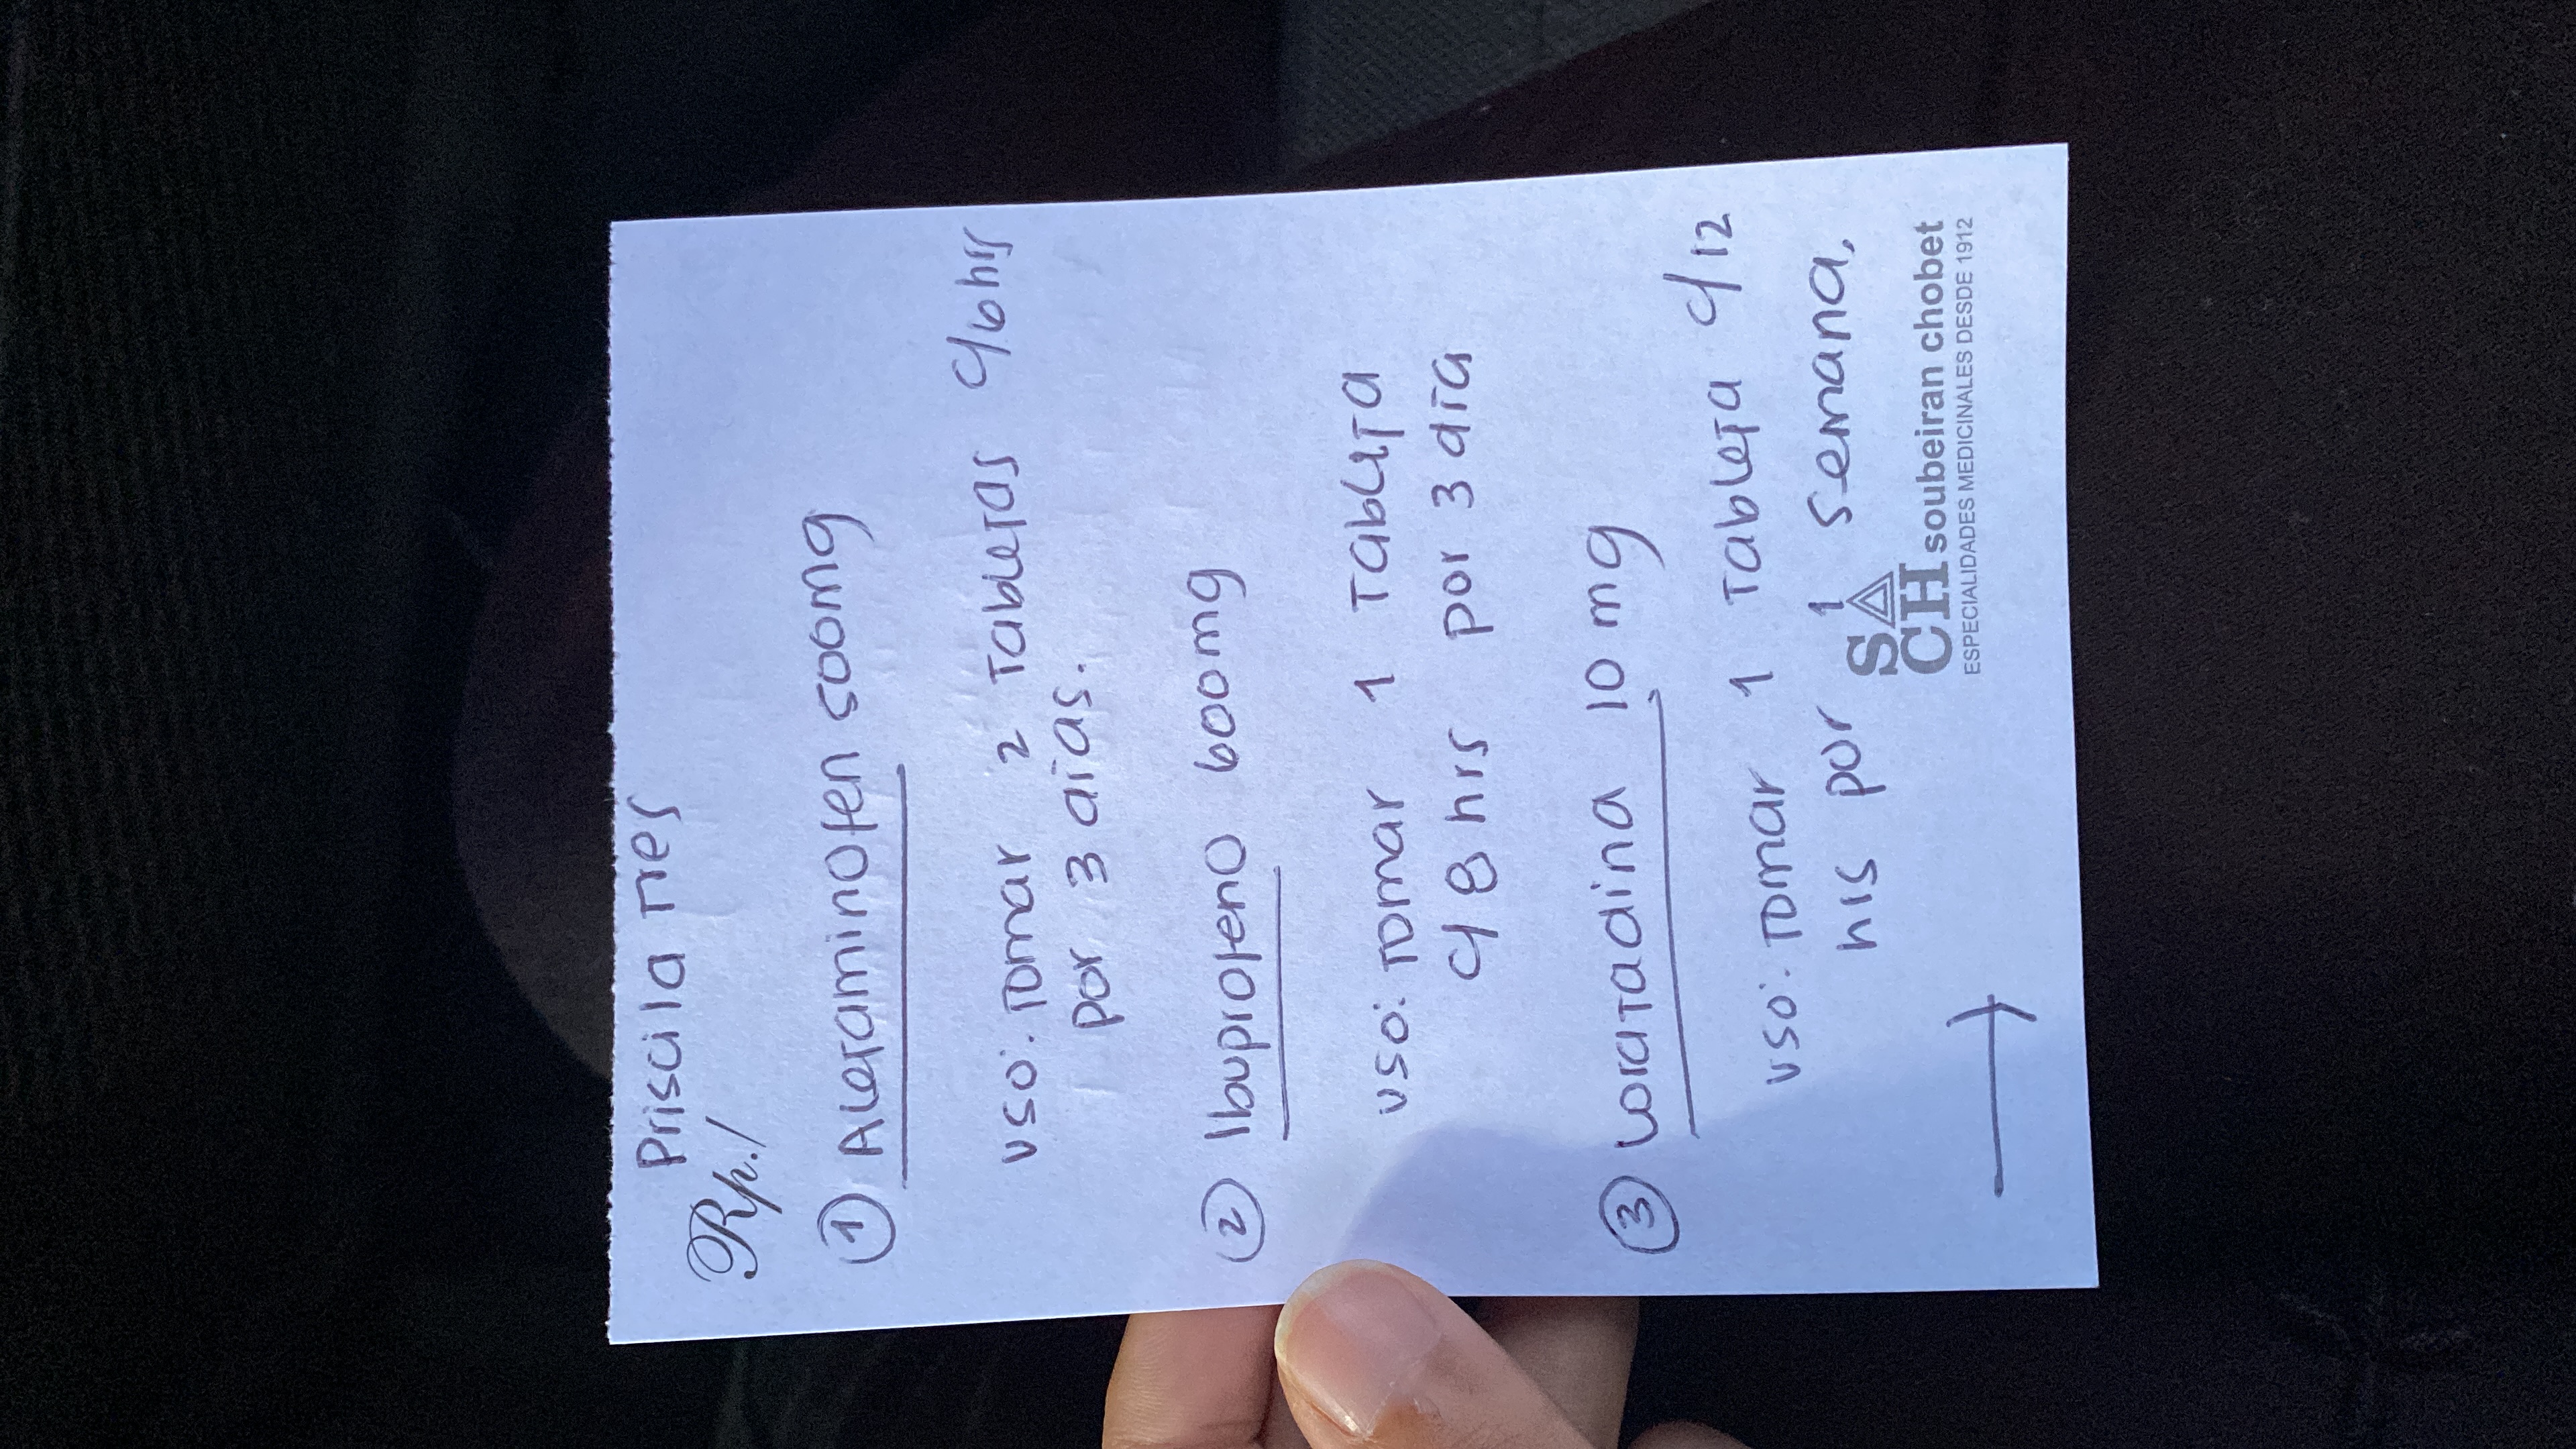 Priscila Tres
Rp./
① Acetaminofen 500mg
uso: Tomar 2 Tabletas c/6hrs
por 3 días.
② Ibuprofeno 600mg
uso: Tomar 1 Tableta
c/8 hrs por 3 día
③ Loratadina 10 mg
uso: Tomar 1 Tableta c/12
hrs por 1 semana.
SA
CH soubeiran chobet
ESPECIALIDADES MEDICINALES DESDE 1912